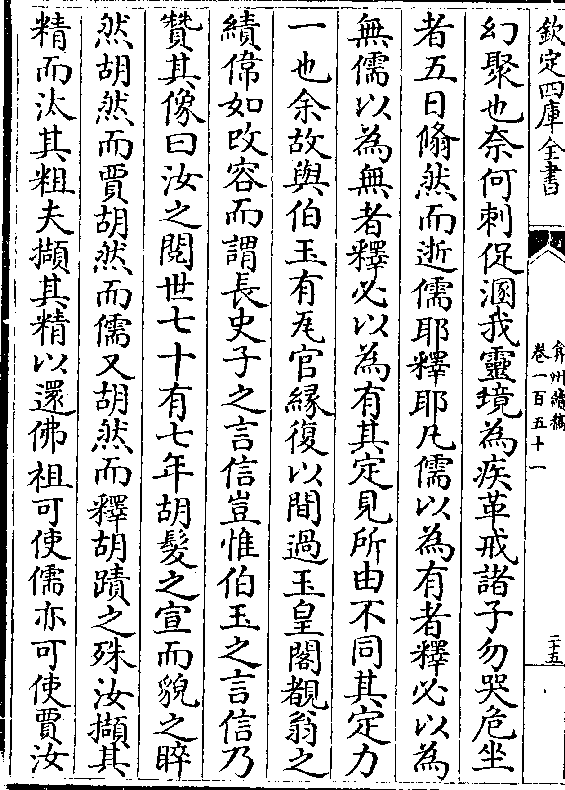 欽定四庫全書
弇州續稿
卷一百五十一
二十五
幻聚也奈何刺促溷我靈境為疾革戒諸子勿哭危坐
者五日翛然而逝儒耶釋耶凡儒以為有者釋必以為
無儒以為無者釋必以為有其定見所由不同其定力
一也余故與伯玉有尨官緣復以間過玉皇閣覩翁之
績偉如改容而謂長史子之言信豈惟伯玉之言信乃
贊其像曰汝之閱世七十有七年胡髮之宣而貌之睟
然胡然而賈胡然而儒又胡然而釋胡蹟之殊汝擷其
精而汰其粗夫擷其精以還佛祖可使儒亦可使賈汝